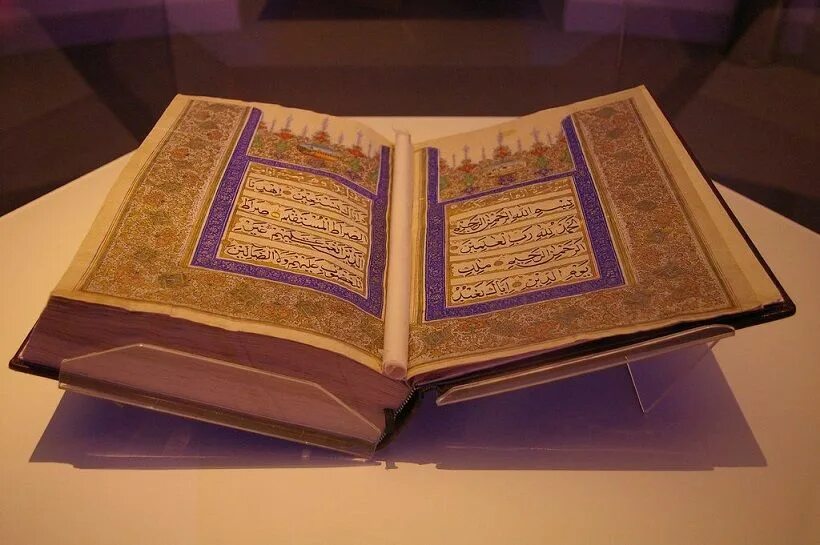 بسم الله الرحمن الرحيم
الحمد لله رب العلمين
الرحمن الرحيم ملك
يوم الدين اياك نعبد
واياك نستعين اهدنا
الصراط المستقيم صراط
الذين انعمت عليهم غير
المغضوب عليهم ولا الضالين